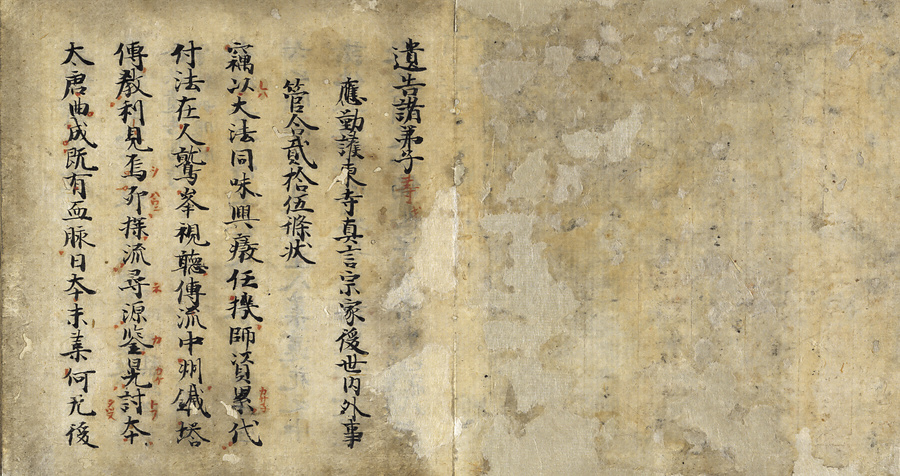 遺告諸弟子等
應勤護東寺真言宗家後世内外事
管合貳拾伍條状
竊以大法同味興廢任機師資累代
付法在人鷲峯視聽傳流中州鐵塔
傳教利見焉夘探流尋源鑒晃討夲
太唐曲成既有血脉日夲末葉何无後